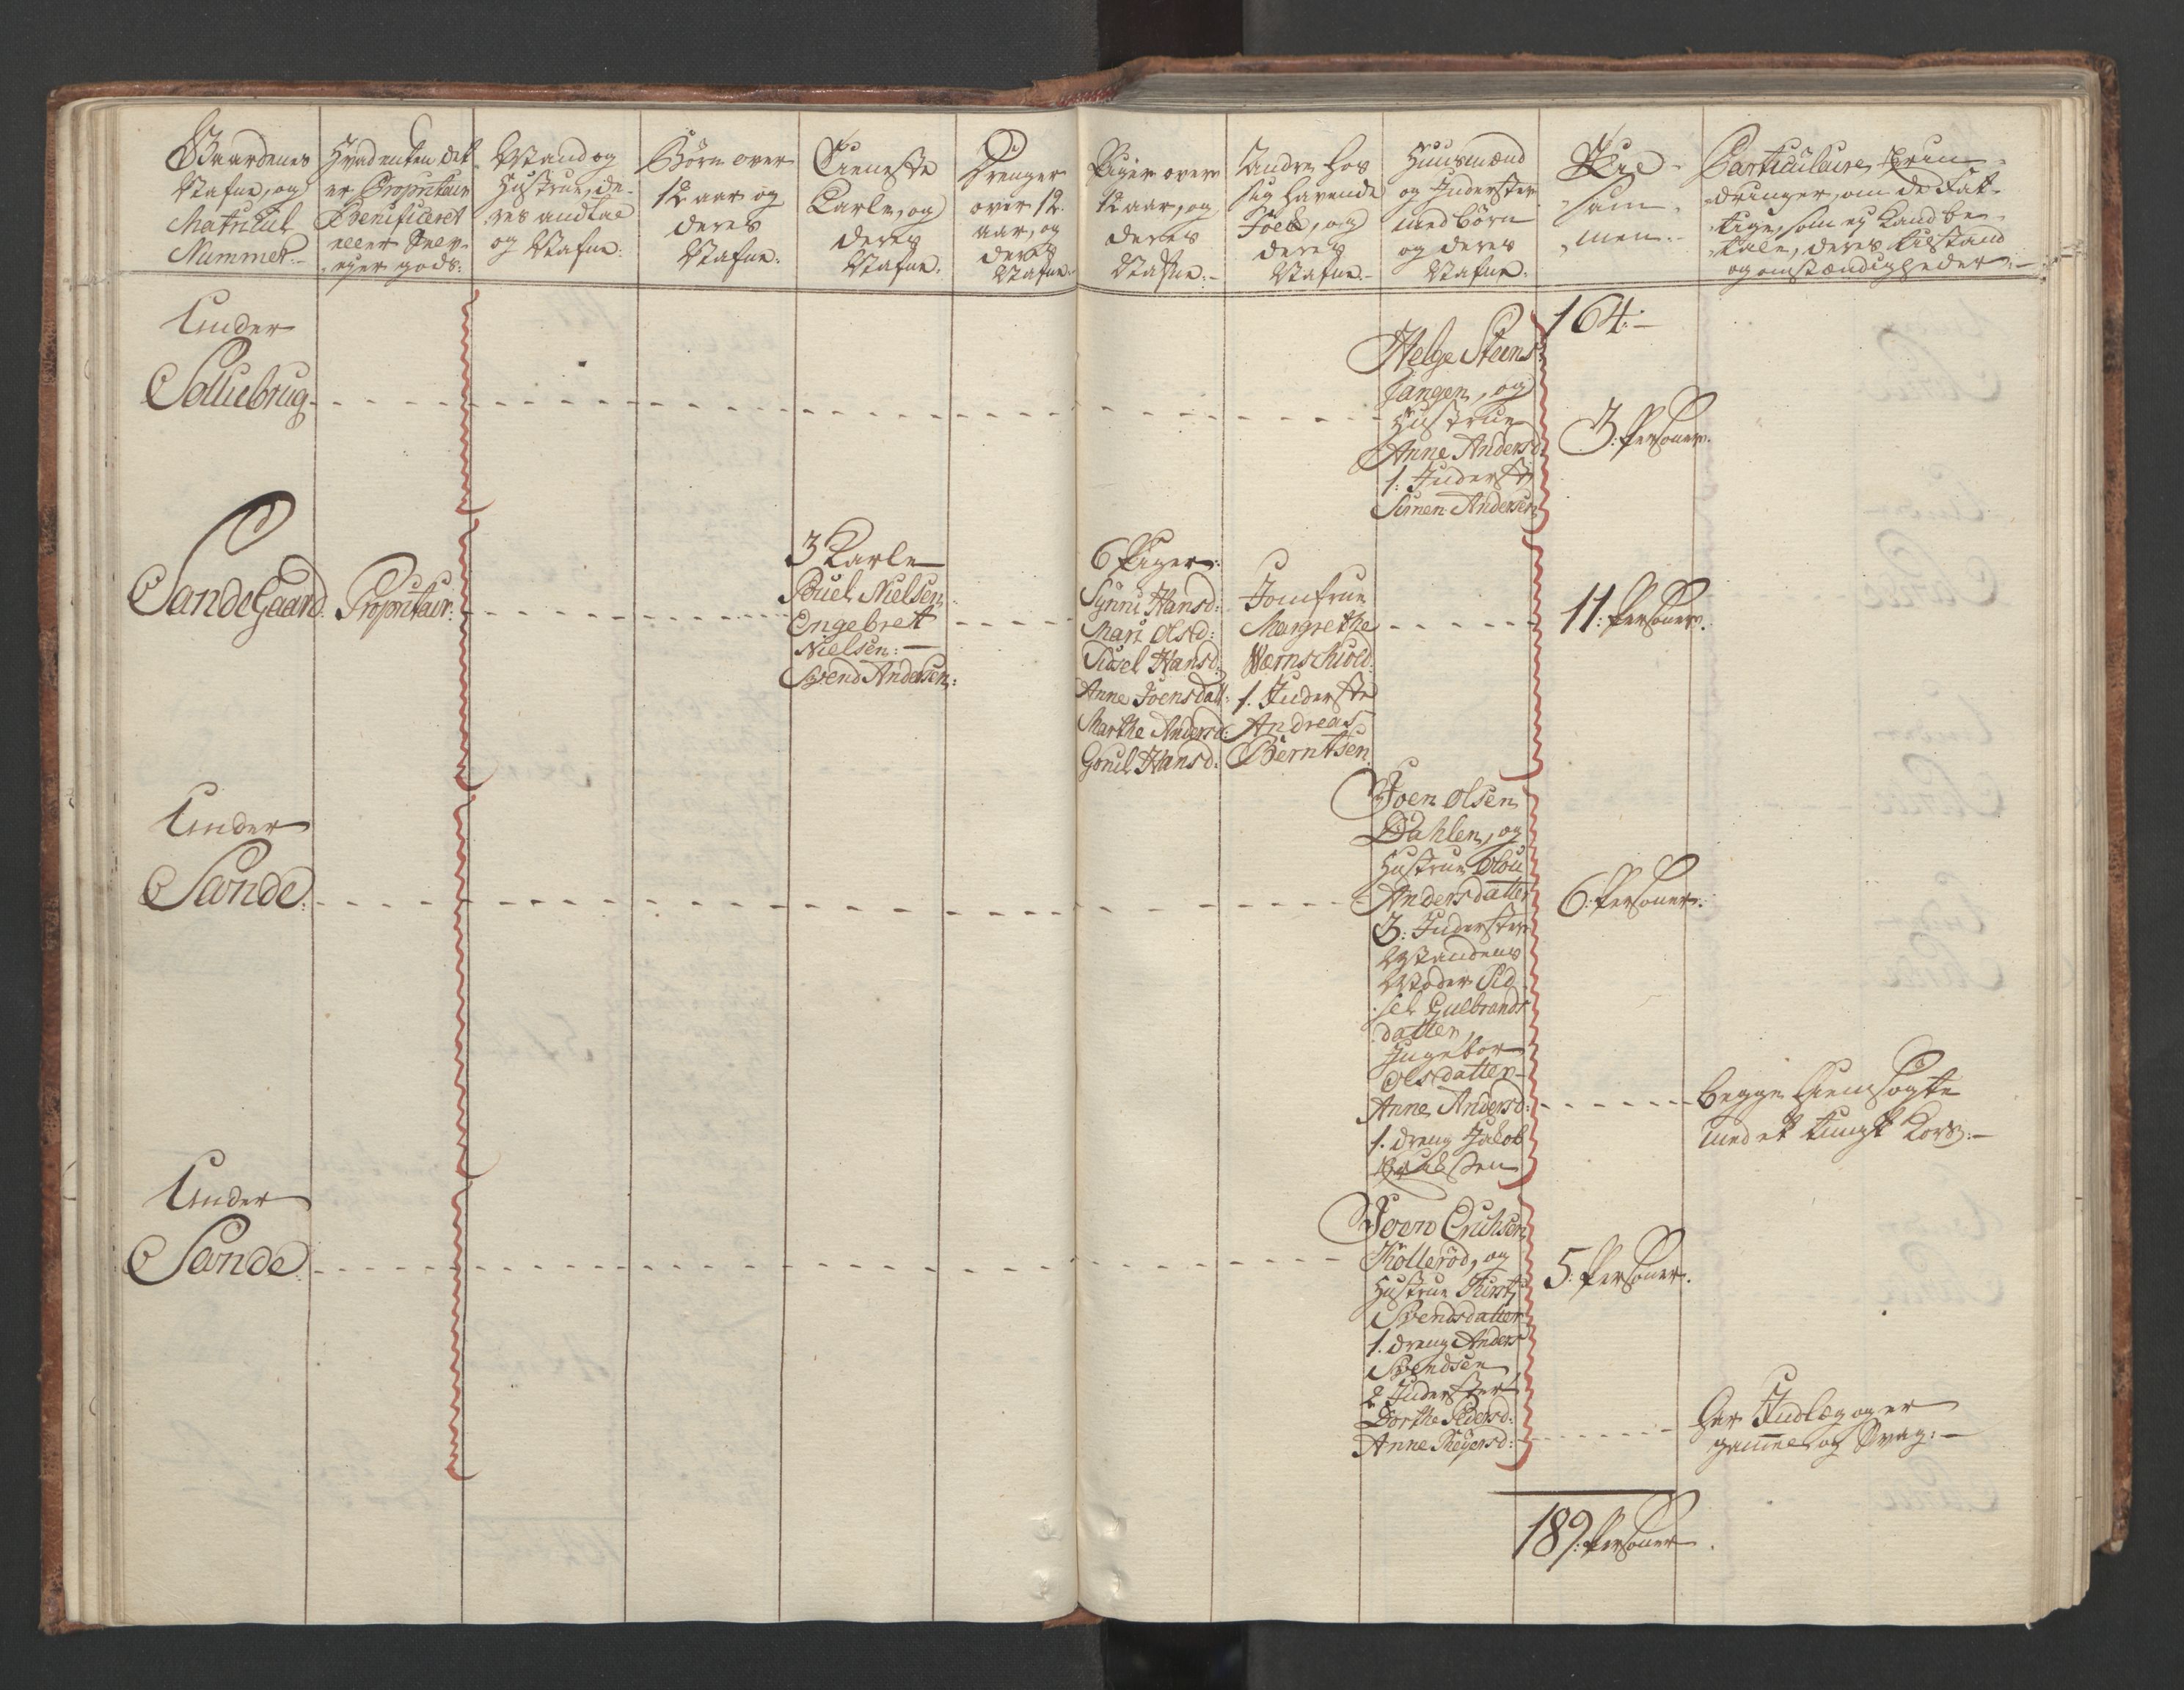 Gaardenes
Nafne, og
Matricul
Nummer.-
Hvad enten det
er Proprietair
Benificeret
eller Selv-
ejer gods:
Mand og
Hustrue, de-
res andtal
og Nafne:
Børn over
12 aar og
deres
Nafne:
Tieneste
Karle, og
deres
Nafne:
Drenger
over 12.
aar, og
deres
Nafne:
Piger over
12 aar, og
deres
Nafne:-
Andre hos
sig havende
Folk, og
deres
Nafne:-
Huusmænd
og Inderster
med børn
og deres
Nafne:
til-
sam-
men:-
Particulaire Erin-
dringer, om de Fat-
tige, som ej kand be-
tale, deres tilstand
og omstændigheder:-
164:-
Under
Solliebrug
Helge Steens
Tangen, og
Hustrue
Anne Andersd:
1: Inderste
Simen Andersen
3: Personer.
SandeGaard:
Proprietair:
3 Karle
Poul Nielsen
Engebret
Nielsen:-
Svend Andersen:
6 Piger:
Synni Hansd:
Mari Olsd:
Sidsel Hansd:
Anne Joensdatt:
Marthe Andersd:
Gonil Hansd:
Jomfrue
Margrethe
Wærnschiold
1. Inderste
Andreas
Berntsen
11: Personer.
Under
Sande
Joen Olsen
Dahlen, og
Hustrue
Andersdatter
3: Inderster
Mandens
Moder Sid-
sel Gulbrands
datter
Ingebor
Olsdatter
Anne Andersd:
1. dreng Jacob
6: Personer:
begge hiemsøgte
med et tungt Kors:-
Under
Sande
Joen Erichsen
Thollerød, og
Hustrue Kirsti
Svendsdatter
1. dreng Anders
Svendsen
2 Inderster
Dorthe Pedersd:
Anne Reyersd:
5: Personer.
har Indlæg og er
gammel og Svag:-
189: Personer.